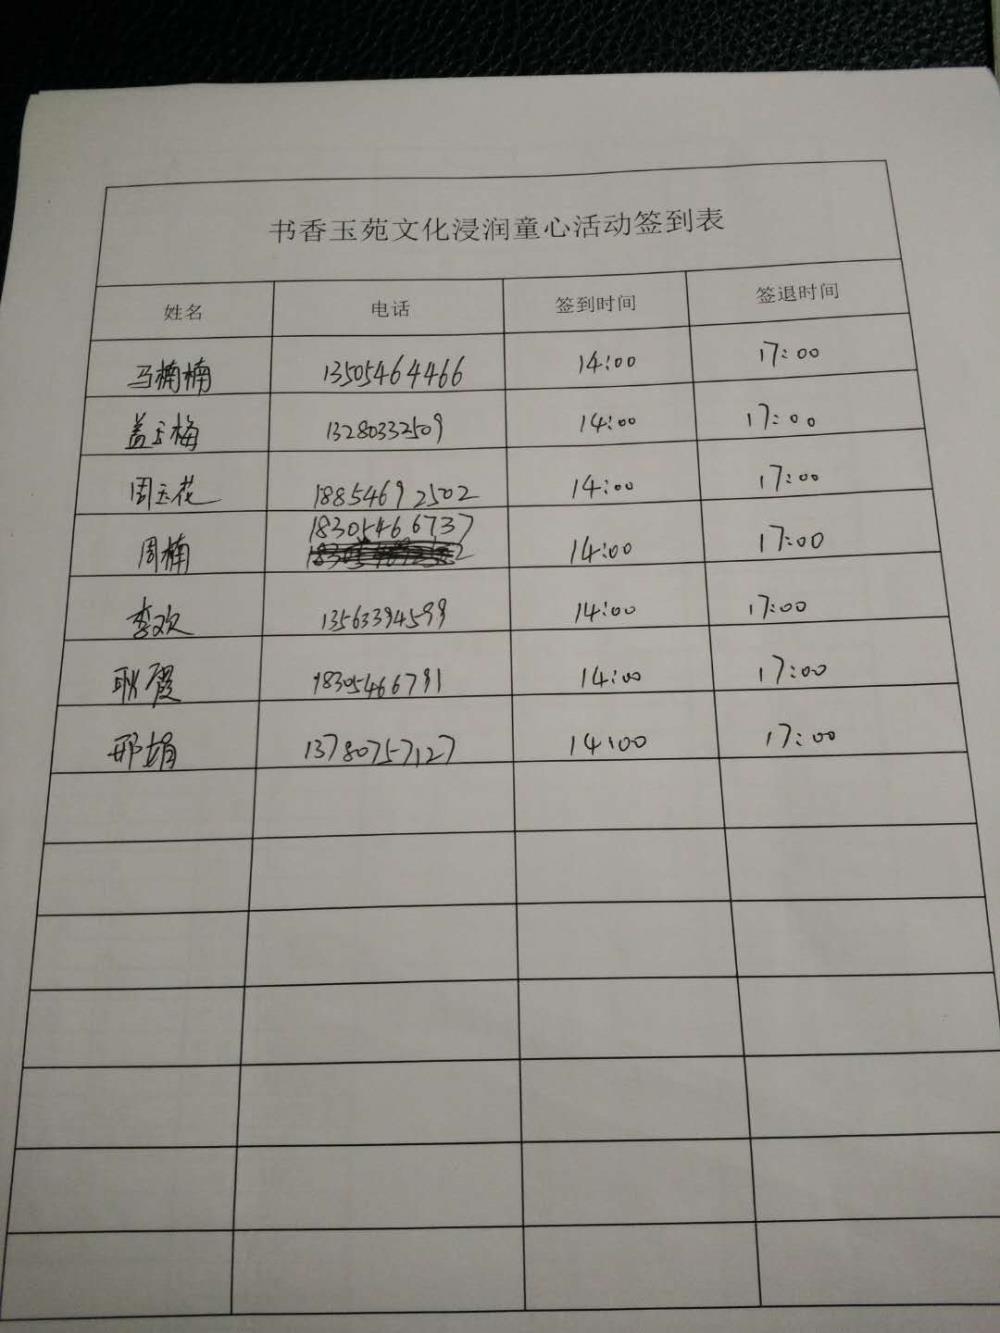 书香玉苑文化浸润童心活动签到表
姓名 电话 签到时间 签退时间
马楠楠 13505464466 14:00 17:00
盖玉梅 13280332509 14:00 17:00
周玉花 18854692502 14:00 17:00
周楠 18305466737 14:00 17:00
李欢 13563394599 14:00 17:00
耿霞 18305466791 14:00 17:00
邢娟 13780757127 14:00 17:00